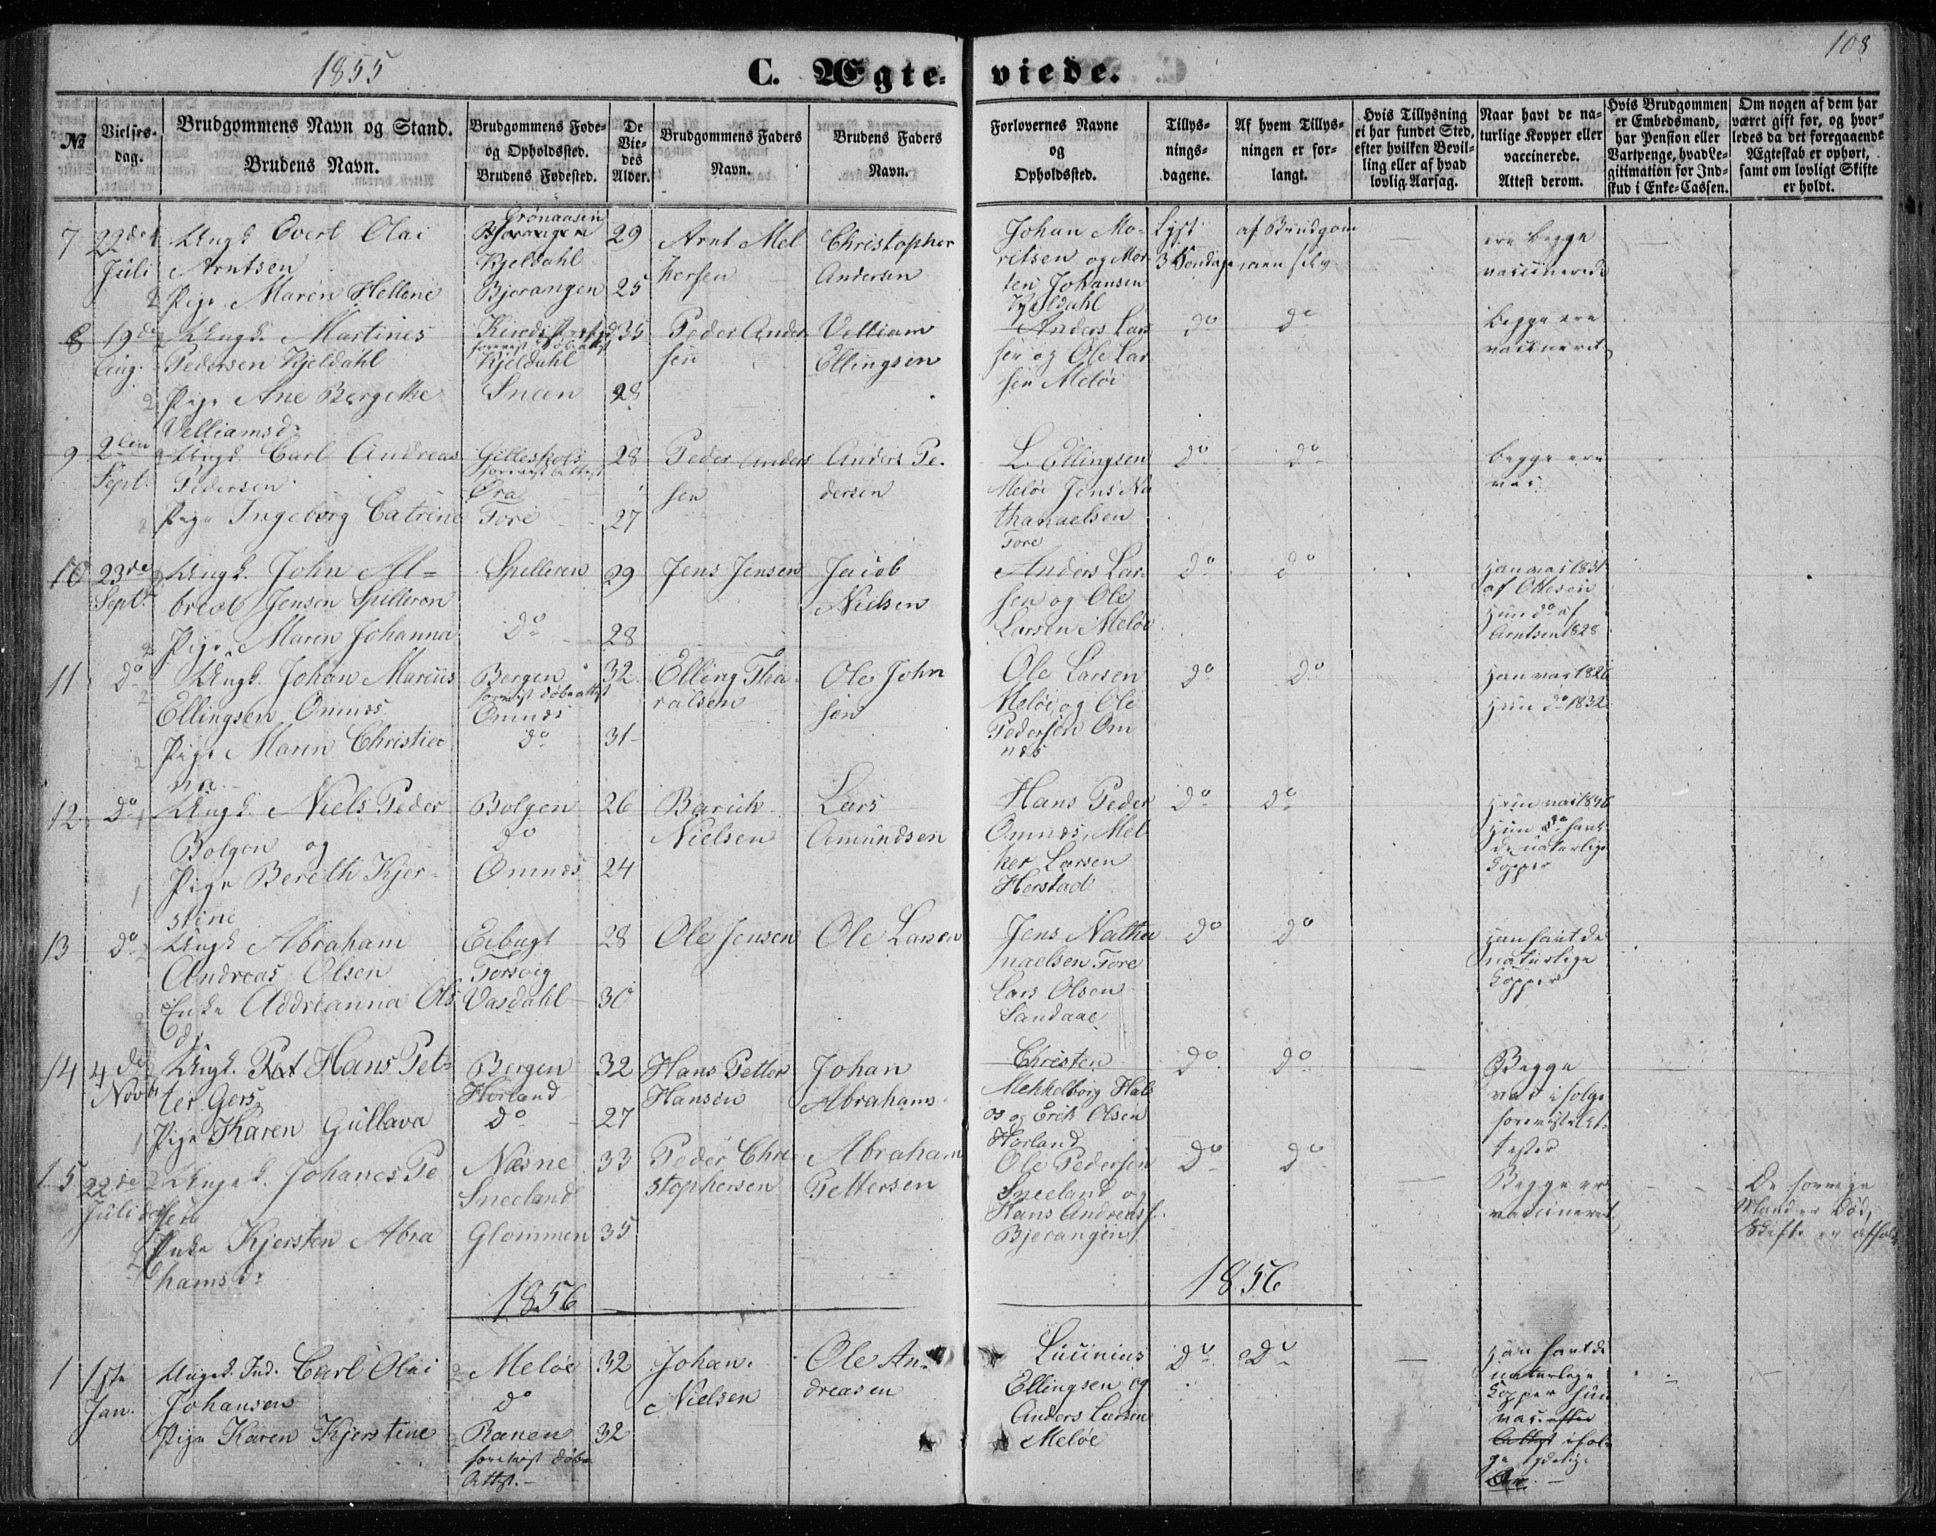 1855
C. Ægte-
viede.
108
№
Vielses-
dag.
Brudgommens Navn og Stand.
Brudens Navn.
Brudgommens Føde-
og Opholdssted.
Brudens Fødested.
De
Vie-
des
Alder.
Brudgommens Faders
Navn.
Brudens Faders
Navn.
Forlovernes Navne
og
Opholdssted.
Tillys-
nings-
dagene.
Af hvem Tillys-
ningen er for-
langt.
Hvis Tillysning
ei har fundet Sted,
efter hvilken Bevil-
ling eller af hvad
lovlig Aarsag.
Naar havt de na-
turlige Kopper eller
vaccinerede.
Attest derom.
Hvis Brudgommen
er Embedsmand,
har Pension eller
Vartpenge, hvad Le-
gitimation for Ind-
skud i Enke-Cassen.
Om nogen af dem har
været gift før, og hvor-
ledes da det foregaaende
Ægteskab er ophørt,
samt om lovligt Skifte
er holdt.
7
22de
Juli
Ungk. Evert Olai
Arntsen
Pige Maren Hellene
Grønaasen
Kjeldahl
Bjerangen
29
25
Arnt Mel
kersen
Christopher
Andersen
Johan Mo-
ritsen og Mor-
ten Johansen
Kjeldahl
Lyst
3 Søndage
af Brudgom
men selv
ere begge
vaccinerede
8
19de
Aug.
Ungk. Martines
Pedersen Kjeldahl
Pige Ane Bergethe
Velliamsd.
Kjeldahl
Sneen
35
28
Peder Ander
sen
Velliam
Ellingsen
Anders Lar
sen og Ole Lar
sen Meløi
do
do
begge ere
vaccineret
9
2den
Sept.
Ungk Carl Andreas
Pedersen
Pige Ingeborg Catrine
Gilleskols
forevist Attest
Øra
Fore
28
27
Peder Anders
sen
Anders Pe-
dersen
L. Ellingsen
Meløi Jens Na
thanaelsen
Fore
do
do
begge ere
vac.
10
23de
Sept.
Ungk. John Al-
brect Jensen Spilleren
Pige Maren Johanna
Spilleren
do
29
28
Jens Jensen
Jacob
Nielsen
Anders Lar-
sen og Ole
Larsen Meløi
do
do
Han vac 1831
af Ottesen
Hun do af
Arntsen 1828
11
do
Ungk. Johan Marius
Ellingsen Ommes
Pige Maren Christia
na
Bergen
forevist døbeattest
Ommes
do
32
31
Elling Tha
ralsen
Ole John
sen
Ole Larsen
Meløi og Ole
Pedersen Om
nes
do
do
Han vac 1826
Hun do 1832
12
do
Ungk. Niels Peder
Bolgen og
Pige Bereth Kjer-
stine
Bolgen
do
Ommes
26
24
Baruk
Nielsen
Lars
Amundsen
Hans Peder
Ommes, Mel
ker Larsen
Herstad
do
do
Hun havt
de naturlige
Kopper
13
do
Ungk Abraham
Andreas Olsen
Enke Addrianna Ols
d.
Eebugt
Forsvig
Vasdahl
28
30
Ole Jensen
Ole Larsen
Jens Natha
naelsen Fore
Lars Olsen
Sandaae
do
do
Han havt de
naturlige
Kopper
14
4de
Novbr
Ungk. Hans Pet-
ter Gers.
Pige Karen Gullava
Bergen
Horland
do
32
27
Hans Petter
Hansen
Johan
Abrahams
Christen
Mehkelborg Hals
os og Erik Olsen
Horland
do
do
Begge
vac ifølge
foreviste At-
tester
15
22de
Juli
Ungk. Johanes Pe
ders
Enke Kjersten Abra
hamsd.
Nesne
Sneeland
Glommen
33
35
Peder Chri
stophersen
Abraham
Pettersen
Ole Pedersen
Sneeland og
Hans Andreas
Bjerangen
do
do
Begge er
vaccineret
De forrige
Mand er død,
Skifte er afhold
1856
1856
1
1ste
Jan.
Ungk. Ind. Carl Olai
Johansen
Pige Karen Kjerstine
Meløe
do
Ranen
forevist døbe
Attst.
32
32
Johan
Nielsen
Ole An-
dreasen
Lucinius
Ellingsen og
Anders Larsen
Meløe
do
do
Han havt de
naturlege
Kopper hun
vac. efter
Attest ifol-
ge tydelige